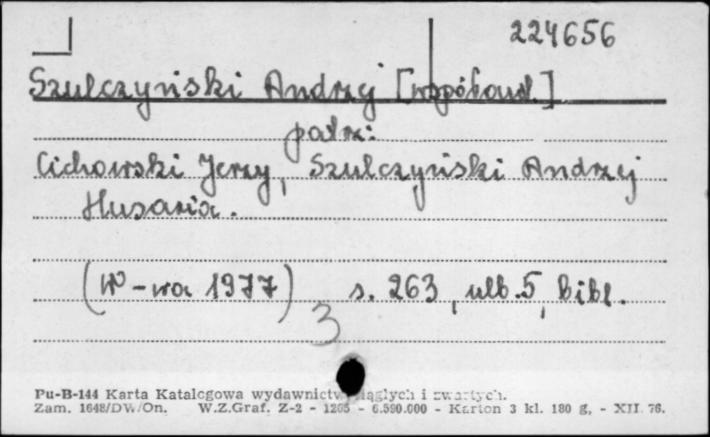 224656
Szulczyński Andrzej [współaut.]
patrz:
Cichowski Jerzy, Szulczyński Andrzej
Husaria.
(W-wa 1977) s. 263, ulb. 5, bibl.
3
Pu-B-144 Karta Katalogowa wydawnictw ciągłych i zwartych.
Zam. 1648/DW/On. W.Z.Graf. Z-2 - 1265 - 6.590.000 - Karton 3 kl. 180 g, - XII. 76.